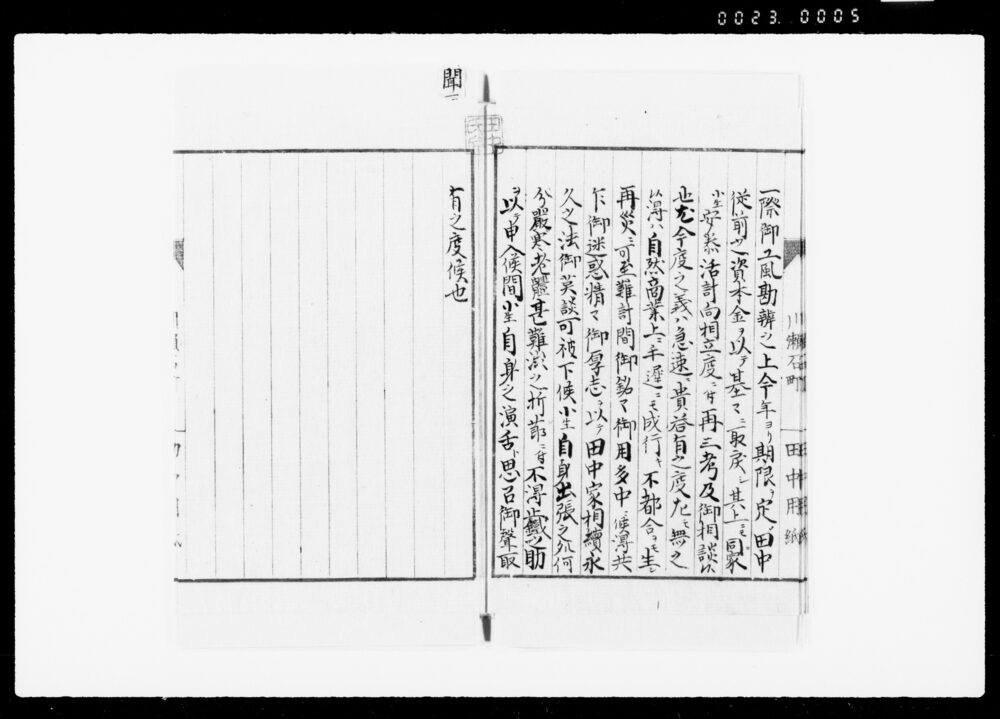 0023.0005
一際御工風勘辨之上今年ヨリ期限ヲ定田中
従前之資本金ヲ以テ基マニ取戻シ其上ニモ同家
小生安泰活計向相立度ニ付再三考及御相談候
也尤今度之義ハ急速ニ貴答有之度尤モ無之
以得ハ自然商業上ニ手遅ニモ成行キ不都合ヲモ生シ
再災ニ可至難計間御銘マ御用多中ニ候得共
乍御迷惑精マ御厚志ヲ以テ田中家相續永
久之法御英談可被下候小生自身出張之外何
分嚴寒老體甚難澁之折節ニ付不得止鐵之助
ヲ以テ申入候間小生自身之演舌ト思召御聲取
聞
有之度候也
川瀬石町
田中用紙